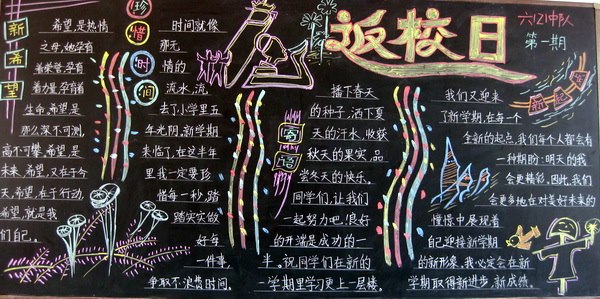 返校日
六(2)中队
第一期
新希望
希望是热情
之母,她孕育
着荣誉,孕育
着力量,孕育着
生命.希望是
那么深不可测,
高不可攀.希望是
未来.希望又在于今
天.希望,在于行动,
希望,就是我
们自己。
珍惜时间
时间就像
那无
情的
流水,流
去了小学里五
年光阴.新学期
来临了.在这半年
里我一定要珍
惜每一秒.踏
踏实实做
好每
一件事
争取不浪费时间.
寄语
播下春天
的种子,洒下夏
天的汗水,收获
秋天的果实,品
尝冬天的快乐.
同学们,让我们
一起努力吧!良好
的开端是成功的一
半。祝同学们在新的
一学期里学习更上一层楼.
我们又迎来
了新学期,在每一个
全新的起点,我们每个人都会有
一种期盼:明天的我
会更精彩.因此,我们
会更多地在对美好未来的
憧憬中展现着
自己迎接新学期
的新形象,我必定会在新
学期取得新进步,新成绩。